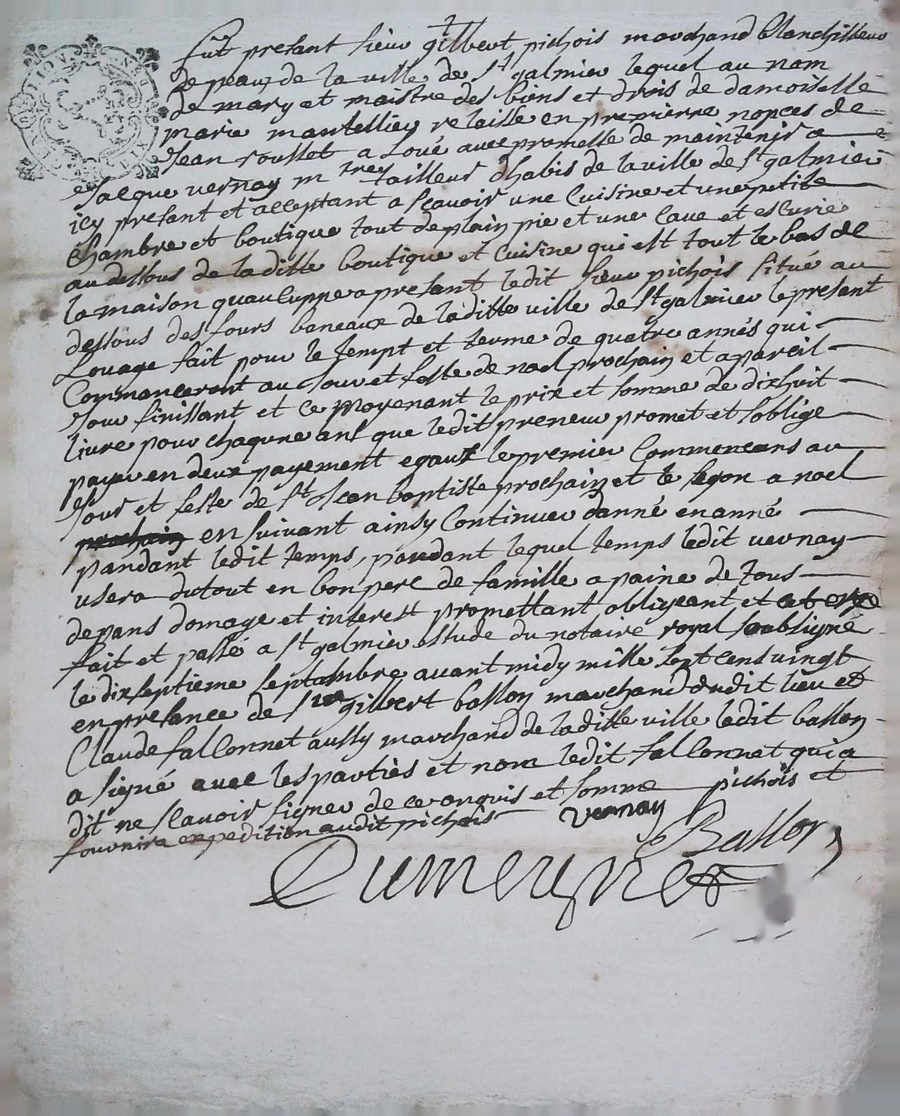 fut presant sieur gilbert pichois marchand blanchisseur
de peau de la ville de st galmier lequel au nom
de mary et maistre des biens et drois de damoiselle
marie mantellier relaissé en premierre nopces de
Jean rousset a Loué avec promesse de maintenir a
Jacque vernay mtre tailleur dhabis de la ville de st galmier
icy presant et acceptant a scavoir une Cuisine et une petite
chambre et boutique tout de plain pie et une Cave et escurie
au dessous de laditte boutique et Cuisine qui est tout le bas de
la maison quauCuppe a presant ledit sieur pichois situé au
dessous des fours baneaux de laditte ville de st galmier le presant
Louage fait pour le tempt et terme de quatre annés qui
Commanceront au Jour et feste de noel prochain et a pareil
Jour finissant et ce moyenant le prix et somme de dixhuit
livre pour chaqune ans que ledit preneur promet et soblige
payer en deux payement egaux le premier Commencans au
Jour et feste de st Jean baptiste prochain et le segon a noel
prochain en suivant ainsy Continuer danné en anné
pandant ledit temps, pandant lequel temps ledit vernay
usera du tout en bon pere de famille a paine de tous
depans domage et interest promettant obligeant et
fait et passé a st galmier estude du notaire royal soubsigné
le dix septieme septambre avant midy mille sept cens vingt
en presance de sieur gilbert ballon marchand dudit lieu et
Claude falConnet aussy marchand de laditte ville ledit ballon
a signé avec les parties et nom ledit falConnet qui a
dit ne scavoir signer de ce anquis et somme pichois et
fournira expedition audit pichois vernay
Ballon
Dumeynet